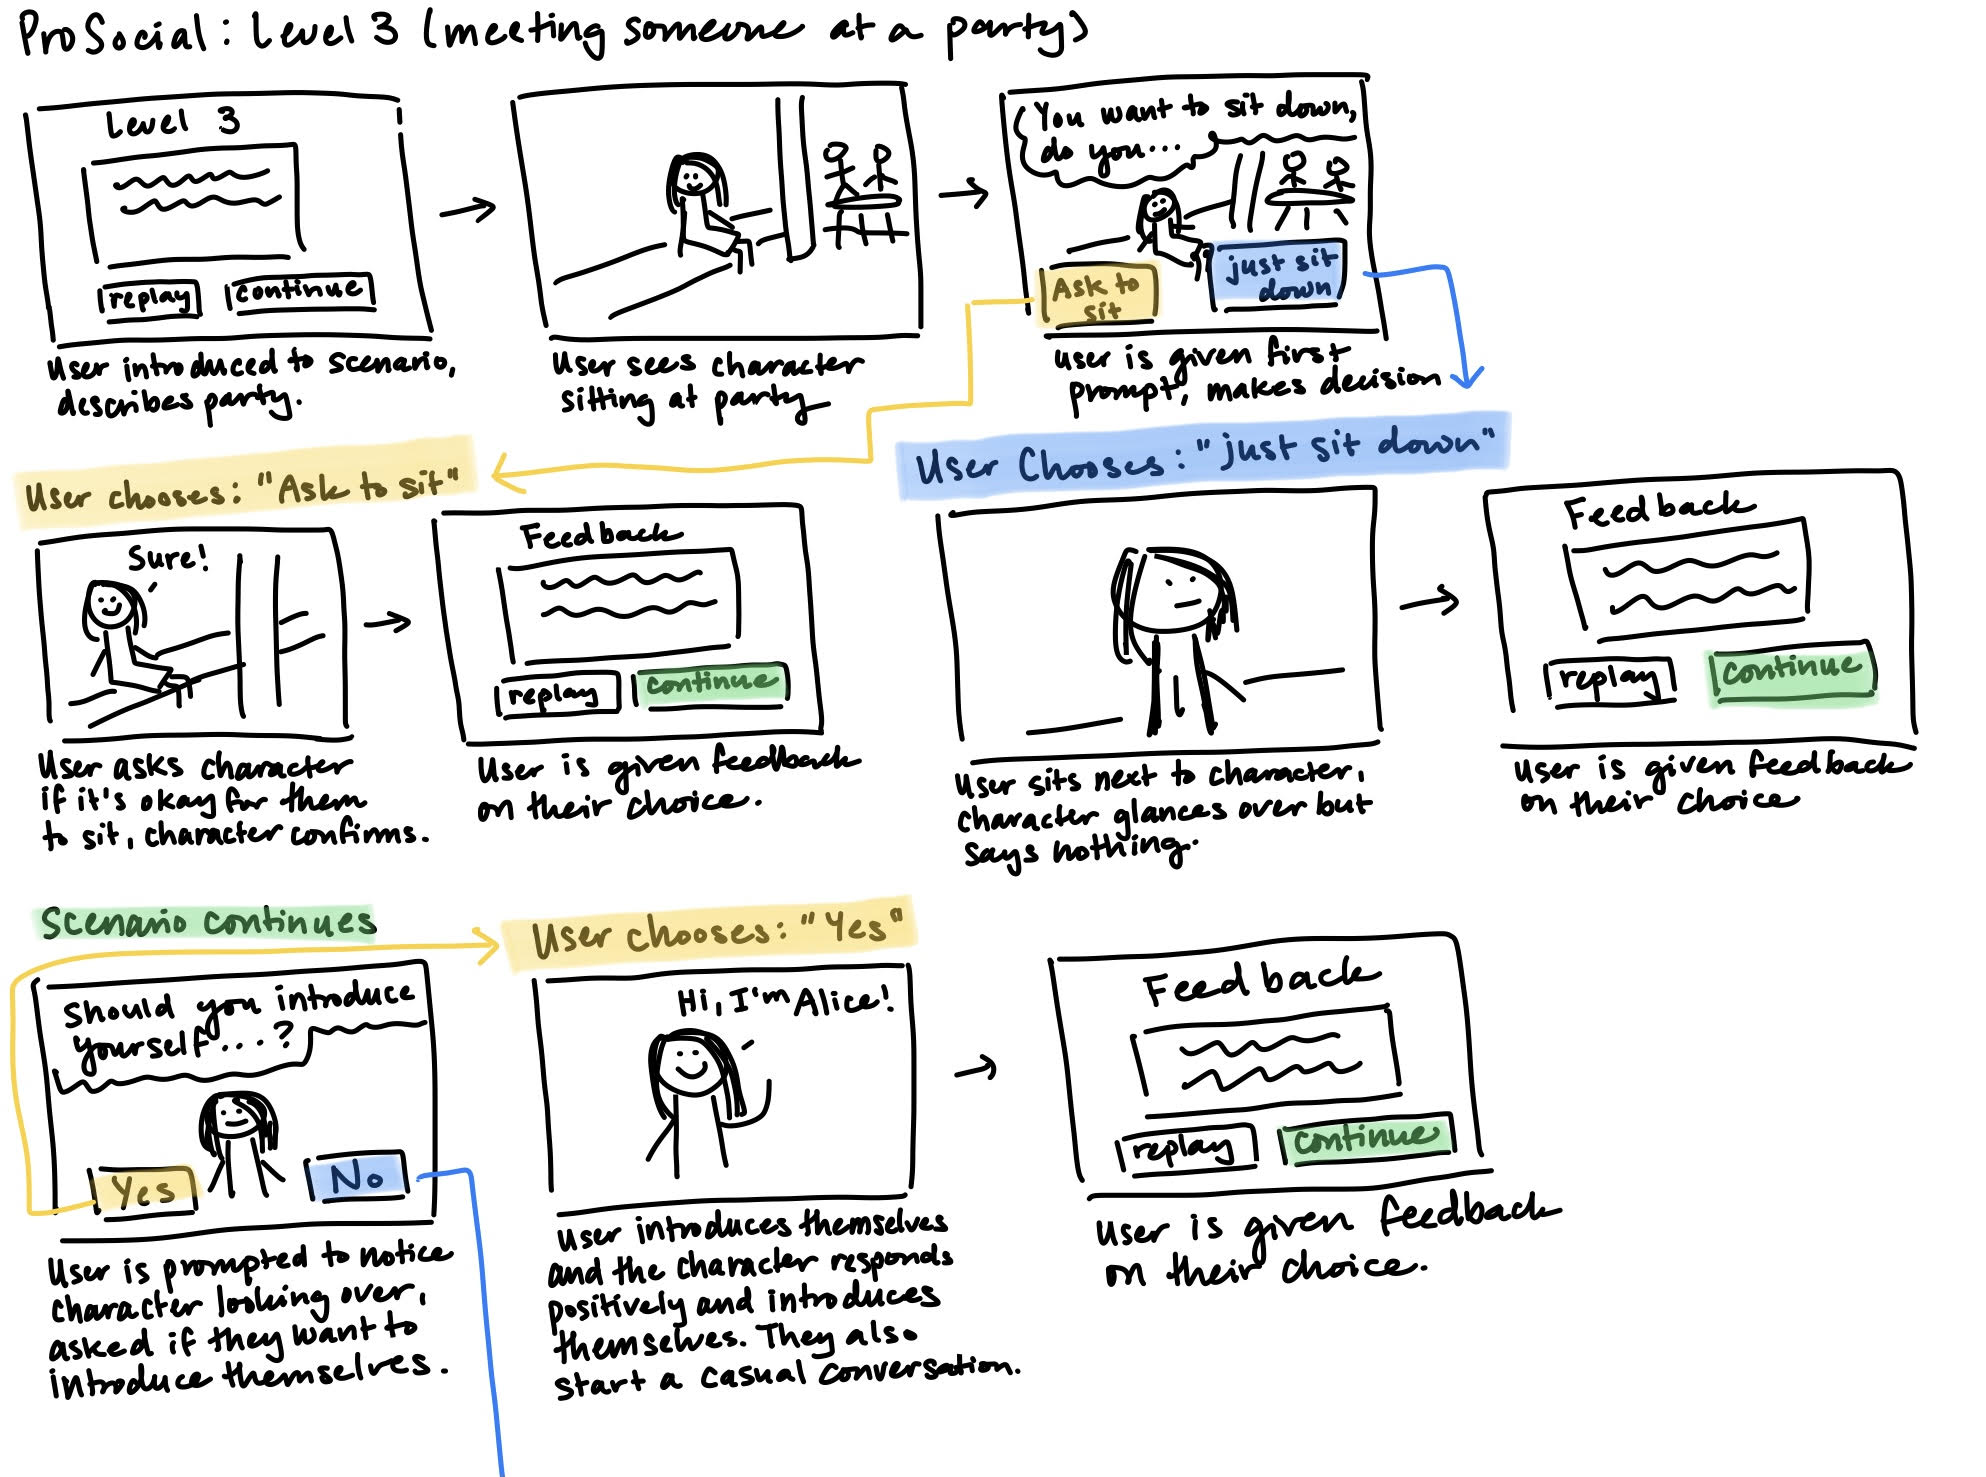 ProSocial: Level 3 (meeting someone at a party)
Level 3
replay
continue
User introduced to scenario,
describes party.
User sees character
sitting at party
You want to sit down,
do you...
Ask to
sit
just sit
down
User is given first
prompt, makes decision
User chooses: "Ask to sit"
Sure!
User asks character
if it's okay for them
to sit, character confirms.
Feedback
replay
continue
User is given feedback
on their choice.
User Chooses: "just sit down"
User sits next to character,
character glances over but
says nothing.
Feedback
replay
continue
User is given feedback
on their choice
Scenario continues
Should you introduce
yourself...?
Yes
No
User is prompted to notice
character looking over,
asked if they want to
introduce themselves.
User chooses: "Yes"
Hi, I'm Alice!
User introduces themselves
and the character responds
positively and introduces
themselves. They also
start a casual conversation.
Feedback
replay
continue
User is given feedback
on their choice.